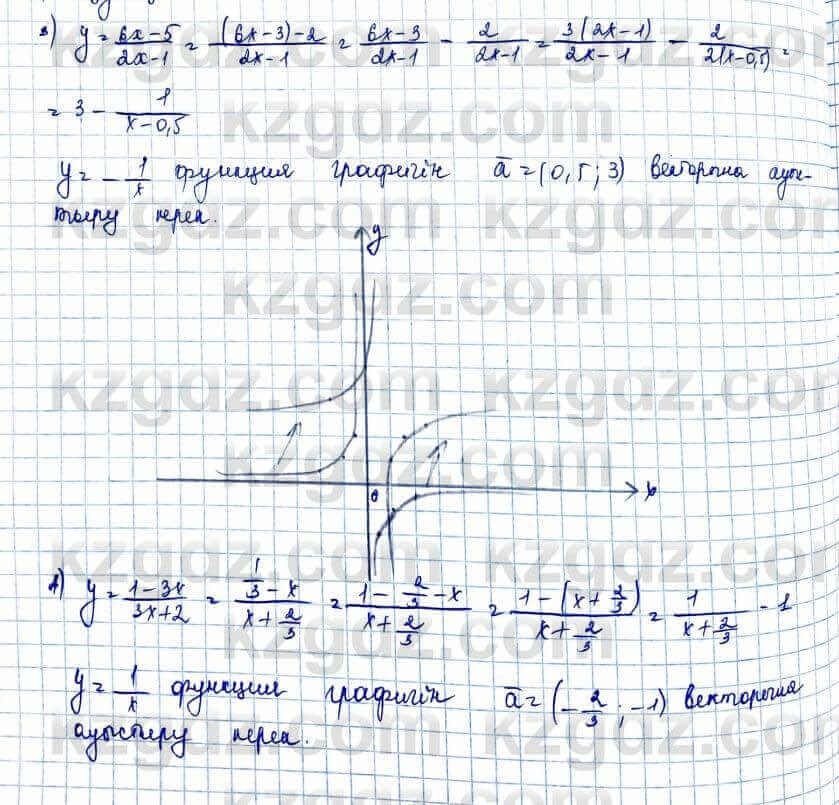 3) y = 6x-5/2x-1 = (6x-3)-2/2x-1 = 6x-3/2x-1 - 2/2x-1 = 3(2x-1)/2x-1 - 2/2(x-0,5) =
= 3 - 1/x-0,5
y = - 1/x функция графигін ā = (0,5; 3) векторына ауыс-
тыру керек.
y
0 x
4) y = 1-3x/3x+2 = 1/3 - x/x + 2/3 = 1 - 2/3 - x/x + 2/3 = 1 - (x + 2/3)/x + 2/3 = 1/x + 2/3 - 1
y = 1/x функция графигін ā = (-2/3; -1) векторына
ауыстыру керек.
kzgdz.com